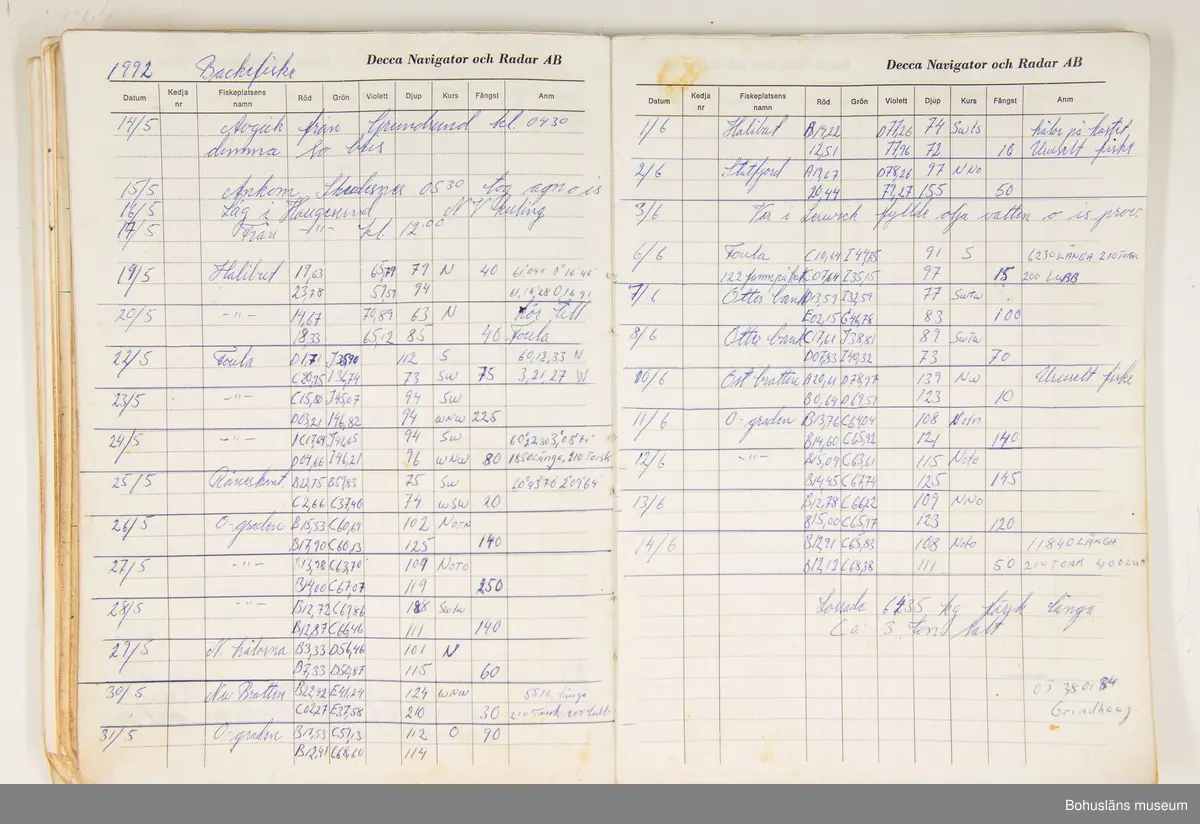 1992 Backefiske
Decca Navigator och Radar AB
Datum Kedja nr Fiskeplatsens namn Röd Grön Violett Djup Kurs Fångst Anm
14/5 Avgick från Grundsund kl. 0430
dimma So bris
15/5 Ankom 0530 tog agn o is
16/5 Låg i Haugesund N V kuling
17/5 Från -"- kl 12.00
19/5 Halibut 19,63 79 N 40
23,78 94
20/5 -"- 14,67 70,89 63 N
18,33 65,12 85 40 Foula
22/5 Foula 112 S 60,12,33 N
C20,75 I36,74 73 SW 75 3,21,27 W
23/5 -"- C15,80 I45,07 94 SW
D03,21 I46,82 94 WNW 225
24/5 -"- I42,65 94 SW
D04,66 I46,21 96 WNW 80 1850 Långa 210 Torsk
25/5 B12,75 75 SW
C2,66 C37,40 74 WSW 20
26/5 O-graden B15,53 C60,61 102
B17,90 C60,13 125 140
27/5 -"- 13,98 C63,70 109 NOTO
B14,00 C67,07 119 250
28/5 -"- B12,72
B12,87 C66,46 111 140
29/5 N. B3,33 D56,46 101 N
B7,33 D50,87 115 60
30/5 NW Bratten B22,92 E46,24 124 WNW 5510 långa
C02,27 E37,58 210 30 210 Torsk 200 Lubb
31/5 O-graden B13,53 C59,13 112 O 90
B12,41 C68,60 114
Decca Navigator och Radar AB
Datum Kedja nr Fiskeplatsens namn Röd Grön Violett Djup Kurs Fångst Anm
1/6 Halibut B14,22 D77,26 74
12,51 77,96 72 10 Uruselt fiske
2/6 Statfjord A19,67 D78,26 97 NNO
20,44 79,27 155 50
3/6 Var i Lerwick fyllde olja vatten o is prov.
6/6 Foula C10,64 I44,75 91 S 6230 LÅNGA 210 TORSK
C07,64 I35,15 97 15 200 LUBB
7/6 Otter bank D13,59 I32,59 77 SWTW
E02,15 G46,78 83 100
8/6 Otter bank C17,61 I38,81 89 SWTW
D07,83 I40,32 73 70
10/6 Ost bratten A20,61 D78,97 139 NW Uruselt fiske
B0,64 D69,51 123 10
11/6 O-graden B13,76 C64,04 108 NOTN
B14,60 C65,92 121 140
12/6 -"- B15,04 C63,61 115 NOTO
B14,45 C67,74 125 145
13/6 B12,78 C66,22 109 NNO
B15,00 C65,17 123 120
14/6 B12,91 C65,83 108 NOTO 11840 LÅNGA
B12,12 C68,38 111 50 210 TORSK 400 LUBB
Lossade 6435 kg torsk långa
Ca 3 ton salt
Bohusläns museum